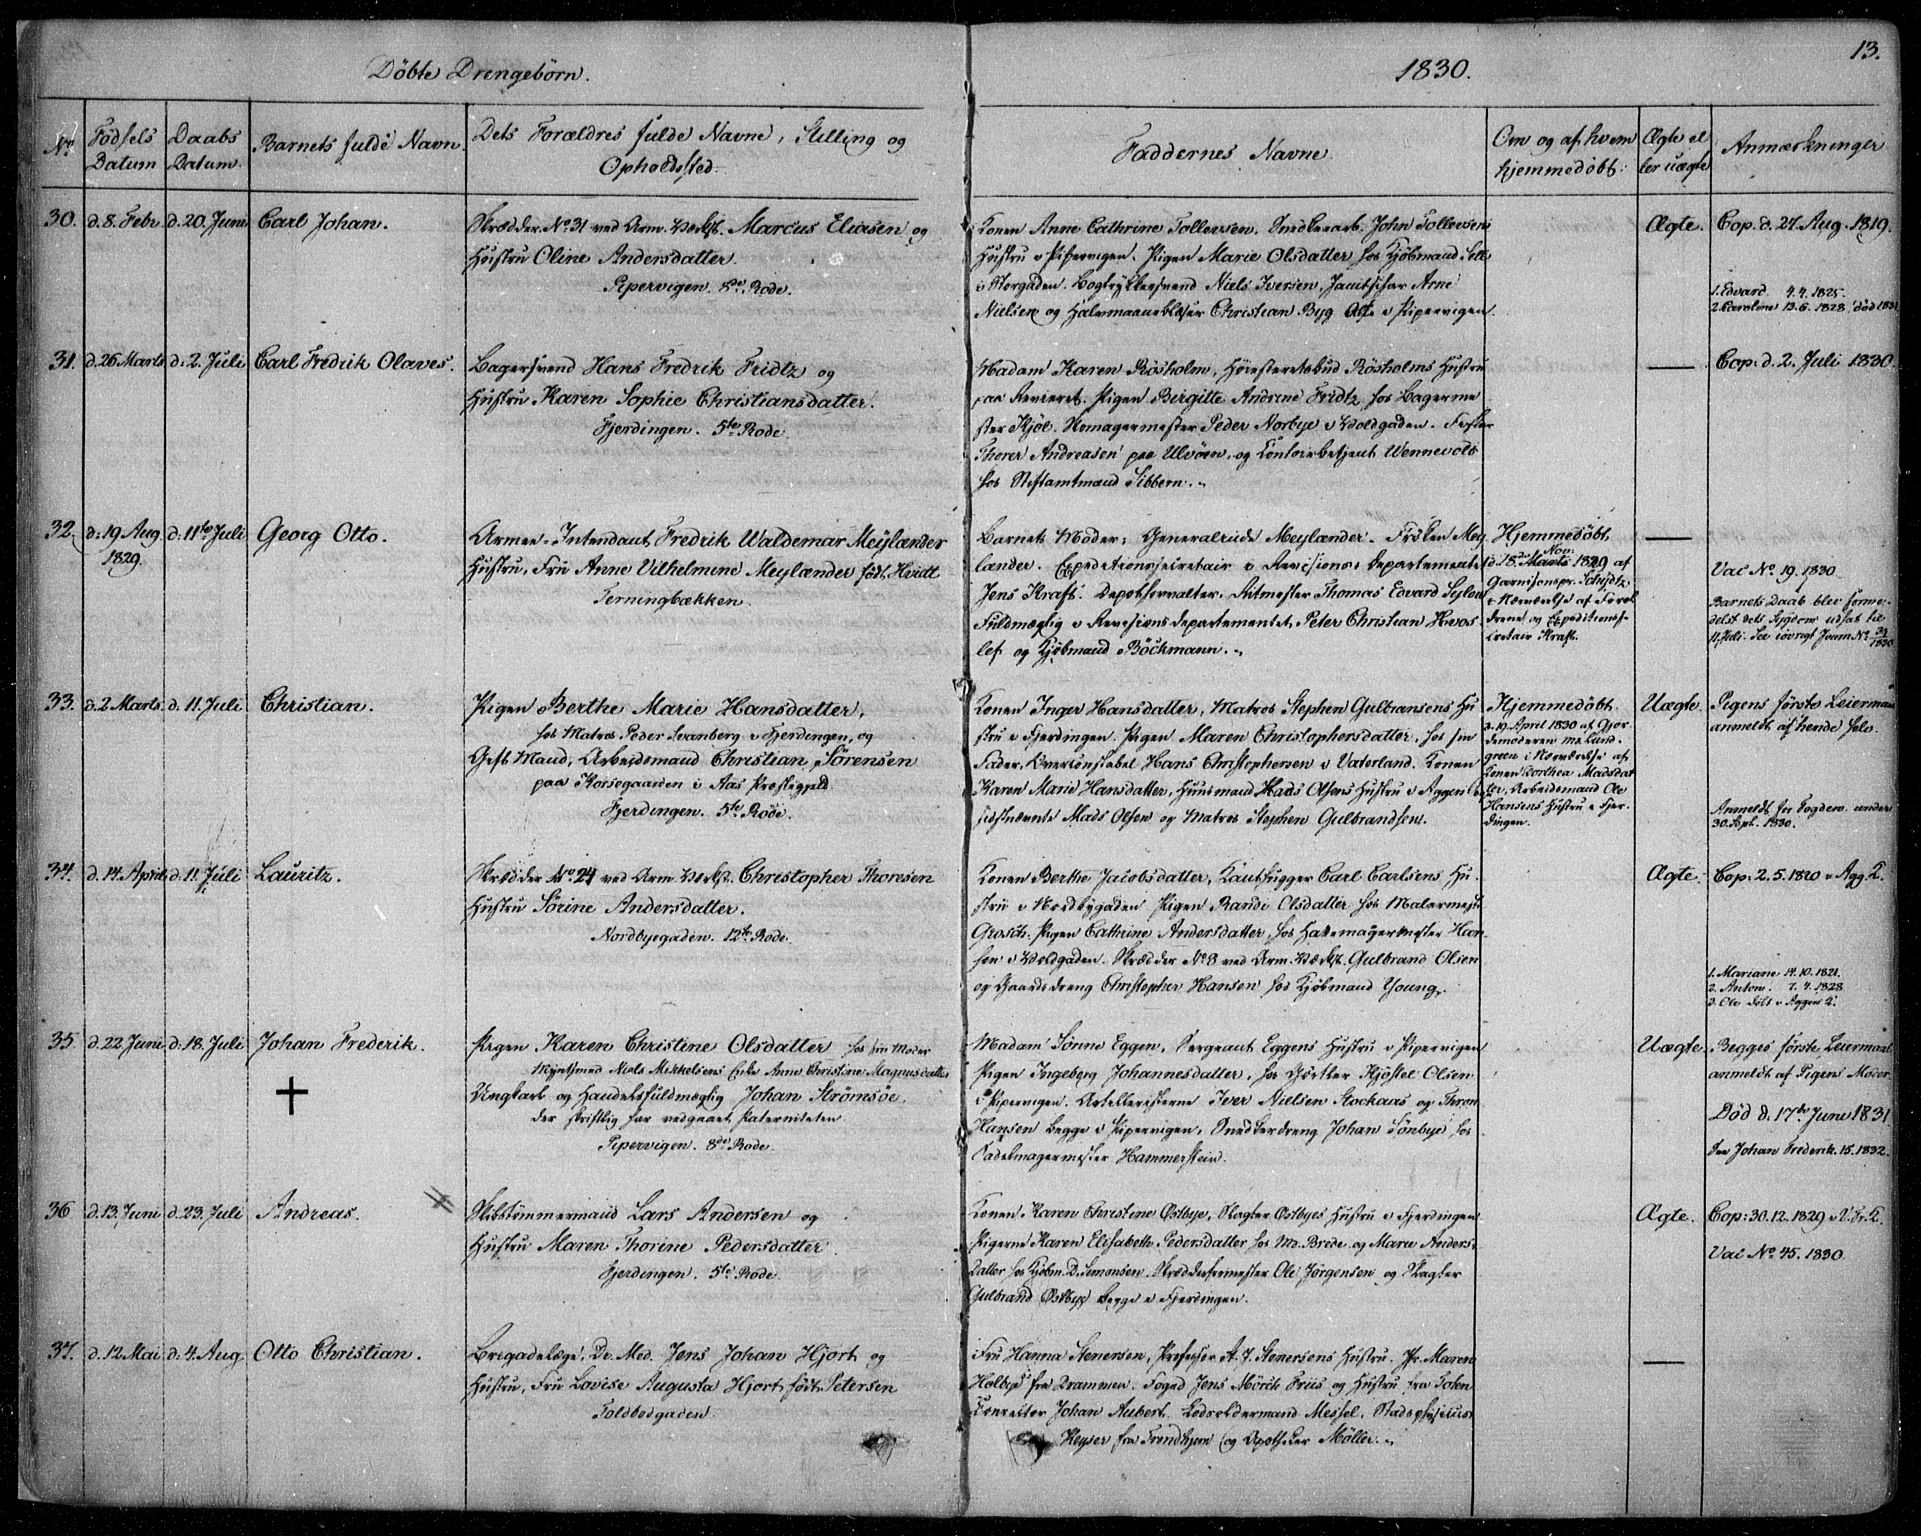 13.
Döbte Drengebörn. 1830.
No. Födsels Datum
Daabs Datum.
Barnets fulde Navn.
Dets Forældres fulde Navne, Stilling og Opholdssted.
Faddernes Navne.
Om og af hvem hjemmedöbt.
Ægte eller uægte
Anmærkninger
30. d. 8. Febr d. 20. Juni Carl Johan.
Skrædder No. 31 ved Arm. Værkst. Marcus Eliasen og
Hustru Oline Andersdatter.
Pipervigen. 8de Rode.
Konen Anne Cathrine Tollevsen, Snedkerarb. John Tollevsens
Hustru i Pipervigen. Pigen Marie Olsdatter hos Kjöbmand
i Storgaden. Bogtrykkersvend Niels Iversen, Janitschar Arne
Nielsen og Halvmaaneblæser Christian Byg i Pipervigen.
Ægte.
Cop. d. 27. Aug. 1819.
1. Edvard 4.4.1825.
2. Caroline 13.6.1828, död 1831
31. d. 26 Marts d. 2. Juli Carl Fredrik Olaves.
Bagersvend Hans Fredrik Fridtz og
Hustru Karen Sophie Christiansdatter.
Fjerdingen. 5te Rode
Madam Karen Rösholm, Höiesteretsbud Rösholms Hustru
paa Revieret. Pigen Birgitte Andrine Fridtz hos Bagerme
ster Kjöl. Remagermester Peder Norbye i Voldgaden. Fisker
Thorer Andreasen paa Ulvöen, og Contoirbetjent Wennevold
hos Stiftamtmand Sibbern.
—
Cop. d. 2. Juli 1830.
32. d. 19 Aug. 1829. d. 11te Juli Georg Otto.
Armee-Intendant Fredrik Waldemar Meylænder
Hustru, Fru Anne Vilhelmine Meylænder födt Hvidt
Terningbækken.
Barnets Moder, Generalinde Meylænder. Fröken Mey
lænder. Expeditionssecretair i Revisions-Departementet
Jens Kraft. Depotforvalter, Ritmester Thomas Edvard
Fuldmægtig i Revisionsdepartementet, Peter Christian Hvos
lef og Kjöbmand Böckmann.
Hjemmedöbt,
d. 18de Nov. 1829 af
Garnisonspr. Schydtz
i Nærværelse af Foræl
drene og Expeditionsse
cretair Kraft.
—
Vac No. 19. 1830.
Barnets Daab blev forme-
delst dets Sygdom udsat til
11. Juli.
33. d. 2 Marts. d. 11. Juli Christian.
Pigen Berthe Marie Hansdatter,
hos Matros Peder Svanberg i Fjerdingen, og
Gift Mand, Arbeidsmand Christian Sörensen
paa Korsegaarden i Aas Præstegjeld
Fjerdingen. 5te Rode.
Konen Inger Hansdatter, Matros Stephen Gulbransens Hu
stru i Fjerdingen. Pigen Maren Christophersdatter, hos sin
Fader, Hans Christophersen i Vaterland. Konen
Karen Marie Hansdatter, Huusmand Mads Olsens Hustru i Aggers
sidstnævnte Mads Olsen og Matros Stephen Gulbrandsen.
Hjemmedöbt.
d. 19. April 1830 af Gjor
demoderen M. Lund
green i Nærværelse af
Konen Dorthea Madsdat
ter, Arbeidsmand Ole
Hansens Hustru i Fjer
dingen.
Uægte.
Pigens förste Leiermaal
anmeldt af hende selv.
Anmeldt for Fogden under
30. Sept. 1830.
34. d. 14. April d. 11. Juli Lauritz.
Skrædder No. 24 ved Arm. Værkst. Christopher Thoresen
Hustru Sörine Andersdatter.
Nordbyegaden. 12te Rode.
Konen Berthe Jacobsdatter, Carl Carlsens Hu
stru i Nordbygaden Pigen Randi Olsdatter hos Malermest.
Grosch. Pigen Cathrine Andersdatter, hos Hattemagermester Han
sen i Voldgaden. Skrædder No. 8 ved Arm. Værkst. Gulbrand Olsen
og Gaardsdreng Christopher Hansen hos Kjöbmand Young.
Ægte.
Cop. 2.5.1820 i Agg. K.
1. Mariane 14.10.1821.
2. Anton. 7.4.1828
3. Ole födt i Aggers K.
35. d. 22 Juni d. 18. Juli Johan Frederik.
+
Pigen Karen Christine Olsdatter hos sin Moder
Myntsmed Niels Mikkelsens Enke Anne Christine Magnusdatter
Ungkarl og Handelsfuldmægtig Johan Strömsöe.
der skriftlig har vedgaaet Paterniteten
Pipervigen. 8de Rode.
Madam Sönne Eggen, Sergeant Eggens Hustru i Pipervigen
Pigen Ingeborg Johannesdatter, hos Kjöstel Olsen
i Pipervigen. Artilleristerne Iver Nielsen Stockaas og Thron
Hansen begge i Pipervigen, Snedkerdreng Johan Sönbye hos
Sadelmagermester Hammerstein.
Uægte.
Begges förste Leiermaal
anmeldt af Pigens Moder.
Död d. 17de Juni 1831
See Johan Frederik. 15. 1832.
36 d. 13. Juni d. 23. Juli Andreas.
Skibstömmermand Lars Andersen og
Hustru Maren Thorine Pedersdatter.
Fjerdingen. 5te Rode.
Konen Karen Christine Östbye, Slagter Östbyes Hustru i Fjerdingen
Pigerne Karen Elisabeth Pedersdatter hos M. Brede og Marie Anders
datter hos Kjöbm. D. Simonsen. Skræddermester Ole Jörgensen og Slagter
Gulbrand Östbye begge i Fjerdingen.
Ægte.
Cop: 30.12.1829 i V. Fr. K.
Vac No. 45. 1830.
37. d. 12. Mai d. 4. Aug. Otto Christian.
Brigadelæge, Dr. Med. Jens Johan Hjort og
Hustru, Fru Lovise Augusta Hjort född Petersen
Toldbodgaden.
Fru Hanna Stenersen, Professor Stenersens Hustru. Jfr. Maren
Holbye fra Drammen. Foged Jens Mörch Friis og Hustru fra Toten
Conrector Johan Aubert. Lodsoldermand Messel, Stadsphysicus
Keyser fra Trondhjem og Apotheker Möller.
—